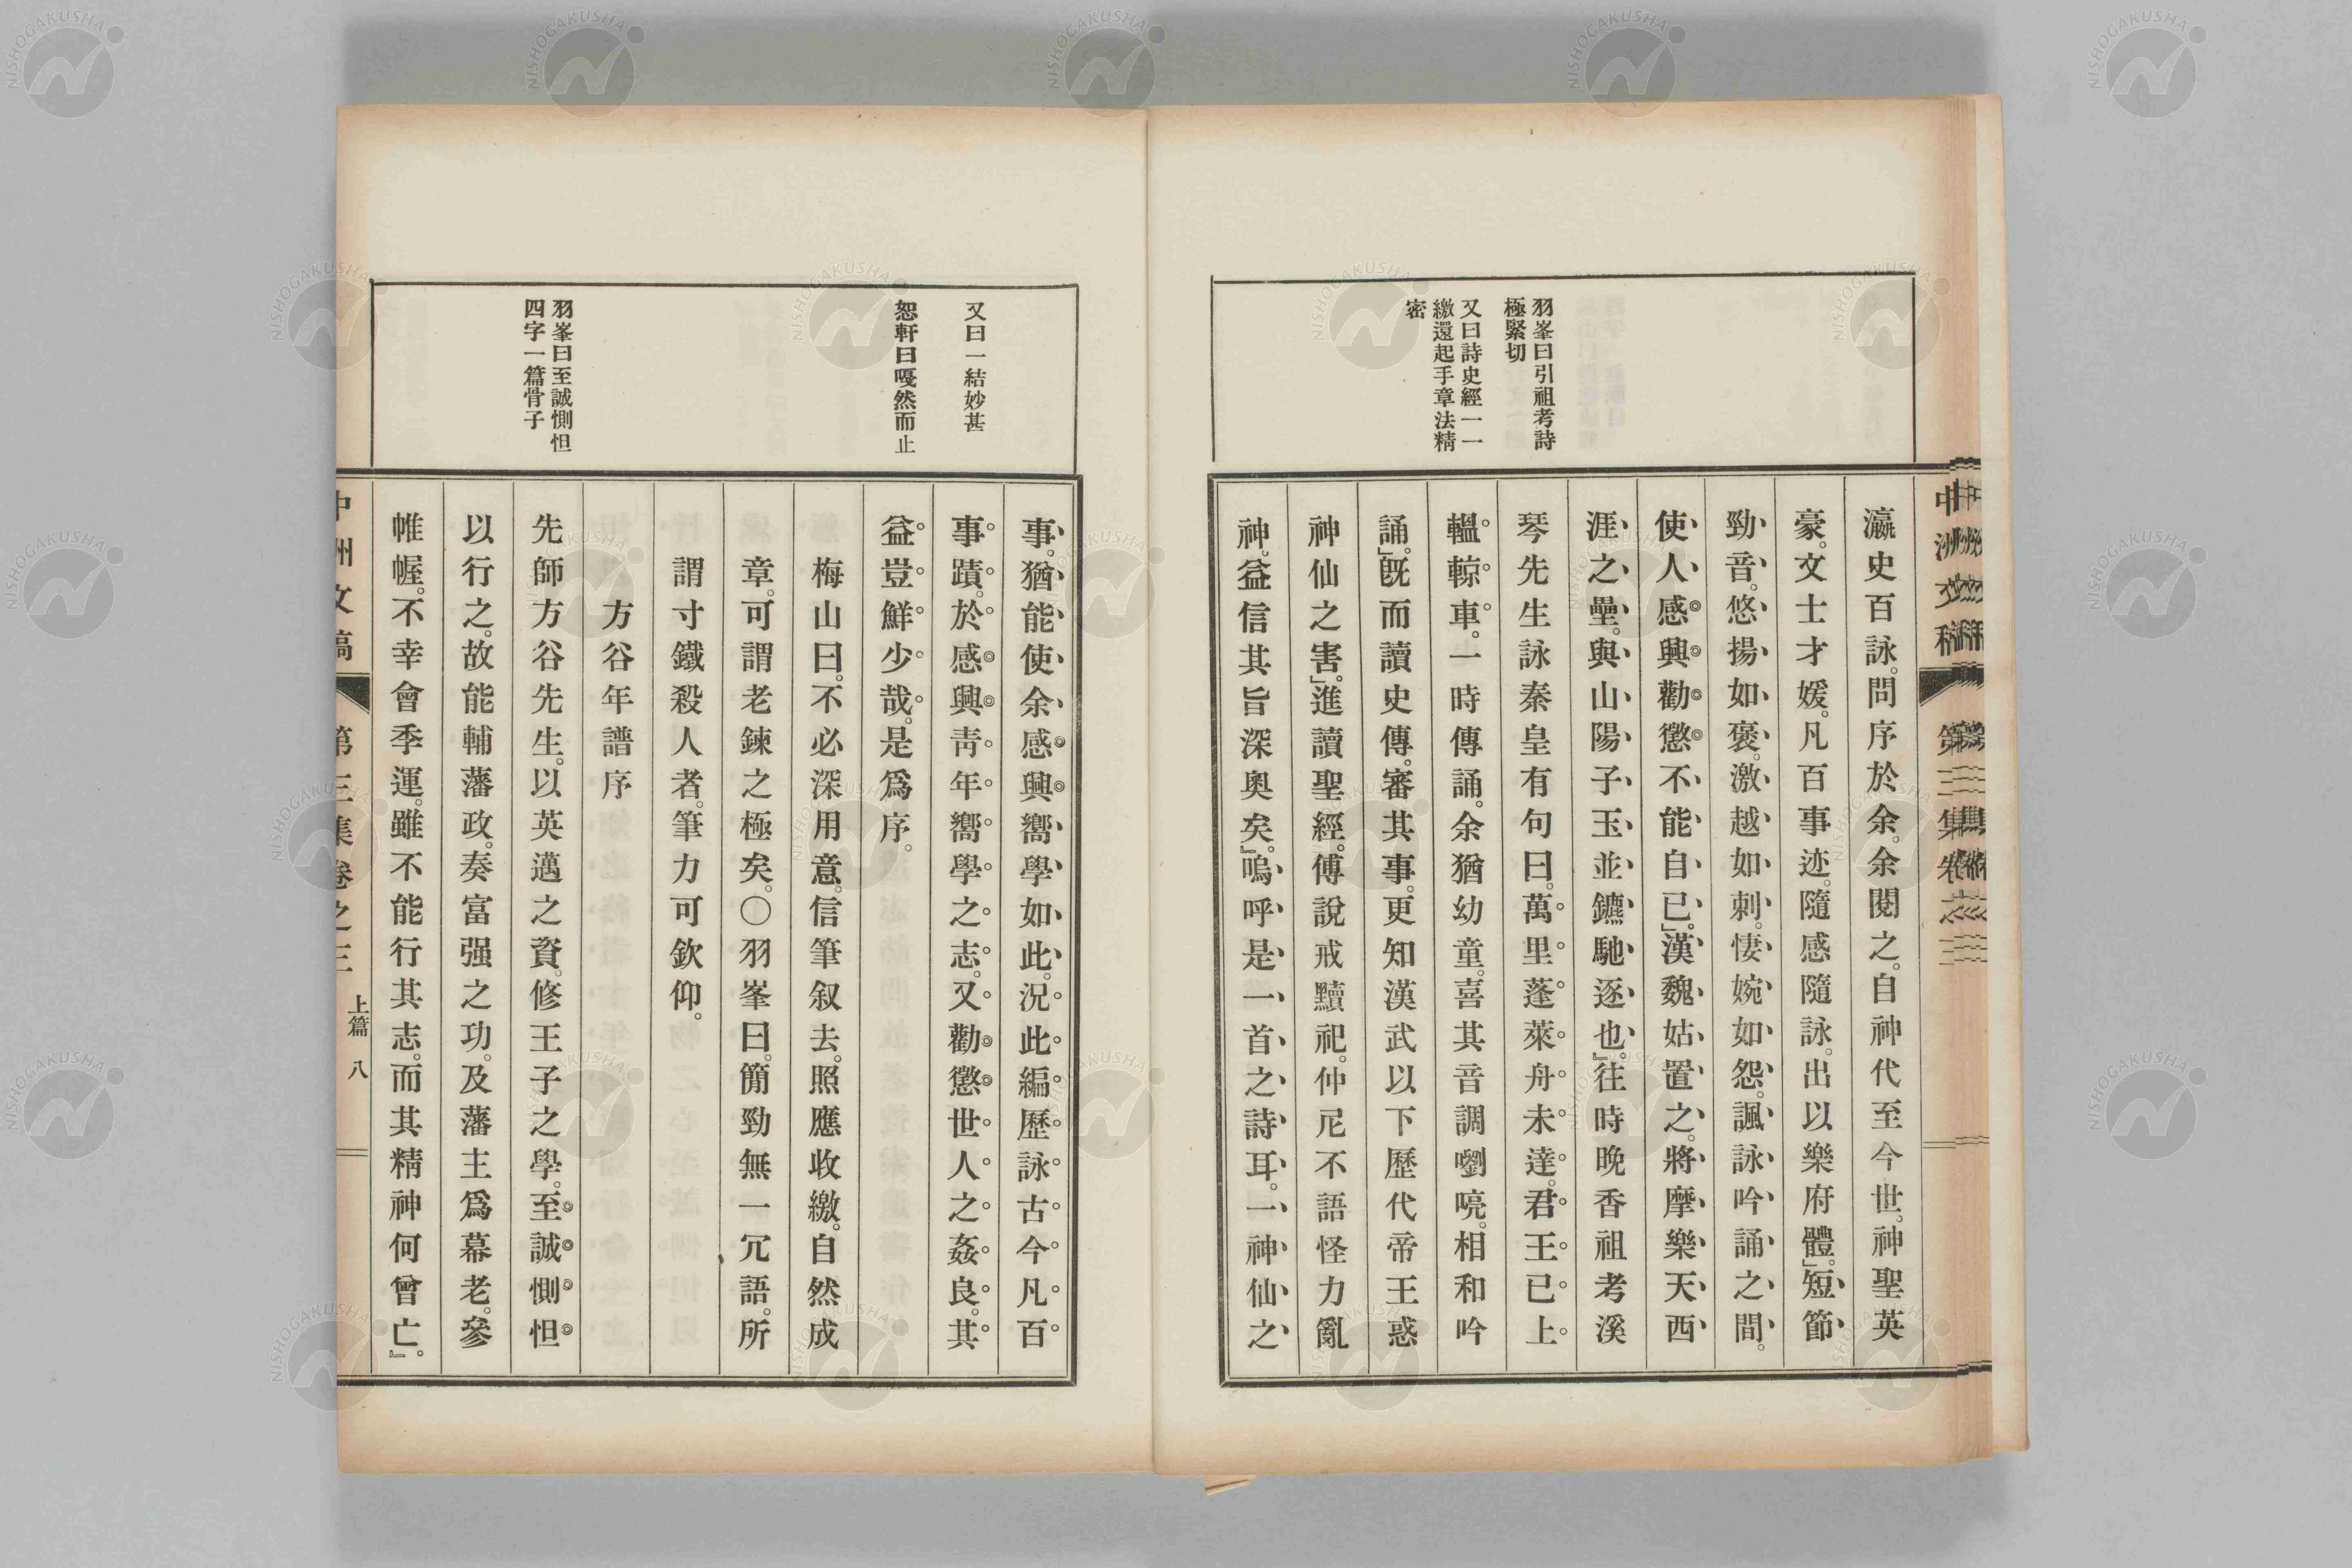 羽峯曰引祖考詩
極緊切
又曰詩史經一一
繳還起手章法精
密
瀛史百詠。問序於余。余閱之。自神代至今世。神聖英
豪。文士才媛。凡百事迹。隨感隨詠。出以樂府體。」短節
勁音。悠揚如褒。激越如刺。悽婉如怨。諷詠吟誦之間。
使人感興勸懲不能自已。」漢魏姑置之。將摩樂天西
涯之壘。與山陽子玉並鑣馳逐也。』往時晚香祖考溪
琴先生詠秦皇有句曰。萬里蓬萊舟未達。君王已上
轀輬車。一時傳誦。余猶幼童。喜其音調嚠喨。相和吟
誦。」旣而讀史傳。審其事。更知漢武以下歷代帝王惑
神仙之害。」進讀聖經。傅說戒黷祀。仲尼不語怪力亂
神。益信其旨深奧矣。』嗚呼是一首之詩耳。一神仙之
又曰一結妙甚
恕軒曰戞然而止
羽峯曰至誠惻怛
四字一篇骨子
事。猶能使余感興嚮學如此。況此編歷詠古今凡百
事蹟。於感興靑年嚮學之志。又勸懲世人之姦良。其
益豈鮮少哉。是爲序。
梅山曰。不必深用意。信筆叙去。照應收繳。自然成
章。可謂老鍊之極矣。〇羽峯曰。簡勁無一冗語。所
謂寸鐵殺人者。筆力可欽仰。
方谷年譜序
先師方谷先生。以英邁之資。修王子之學。至誠惻怛
以行之。故能輔藩政。奏富强之功。及藩主爲幕老。參
帷幄。不幸會季運。雖不能行其志。而其精神何曾亡。』
中洲文稿
第三集卷之三
上篇
八